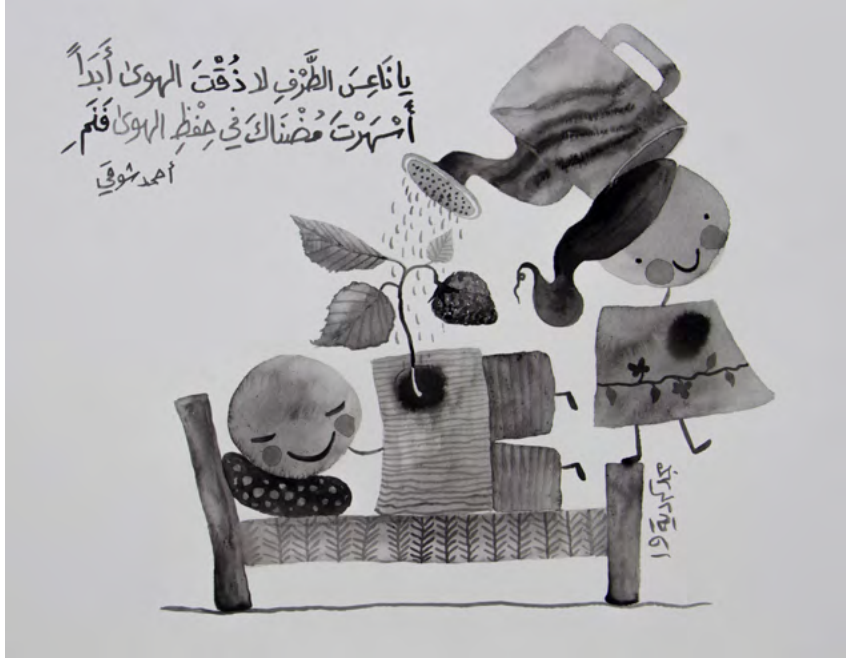 يا نَاعِسَ الطَّرْفِ لا ذُقْتَ الهوىٰ أَبَدَاً
أَسْهَرْتَ مُضْنَاكَ في حِفْظِ الهوىٰ فَنَمِ
أحمد شوقي